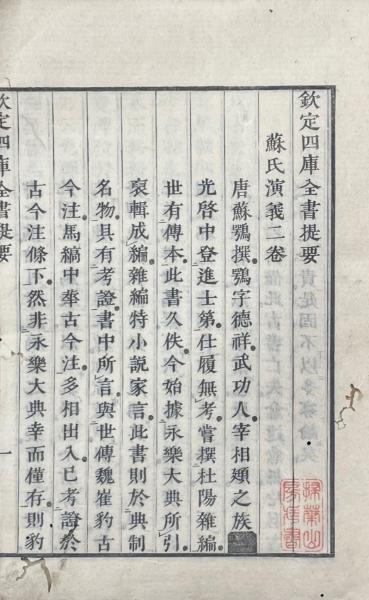 欽定四庫全書提要
蘇氏演義二卷
唐蘇鶚撰鶚字德祥武功人宰相頲之族
光啓中登進士第仕履無考嘗撰杜陽雜編
世有傳本此書久佚今始據永樂大典所引
裒輯成編雜編特小說家言此書則於典制
名物具有考證書中所言與世傳魏崔豹古
今注馬縞中華古今注多相出入已考證於
古今注條下然非永樂大典幸而僅存則豹
欽定四庫全書提要
一
掃葉山
房督書